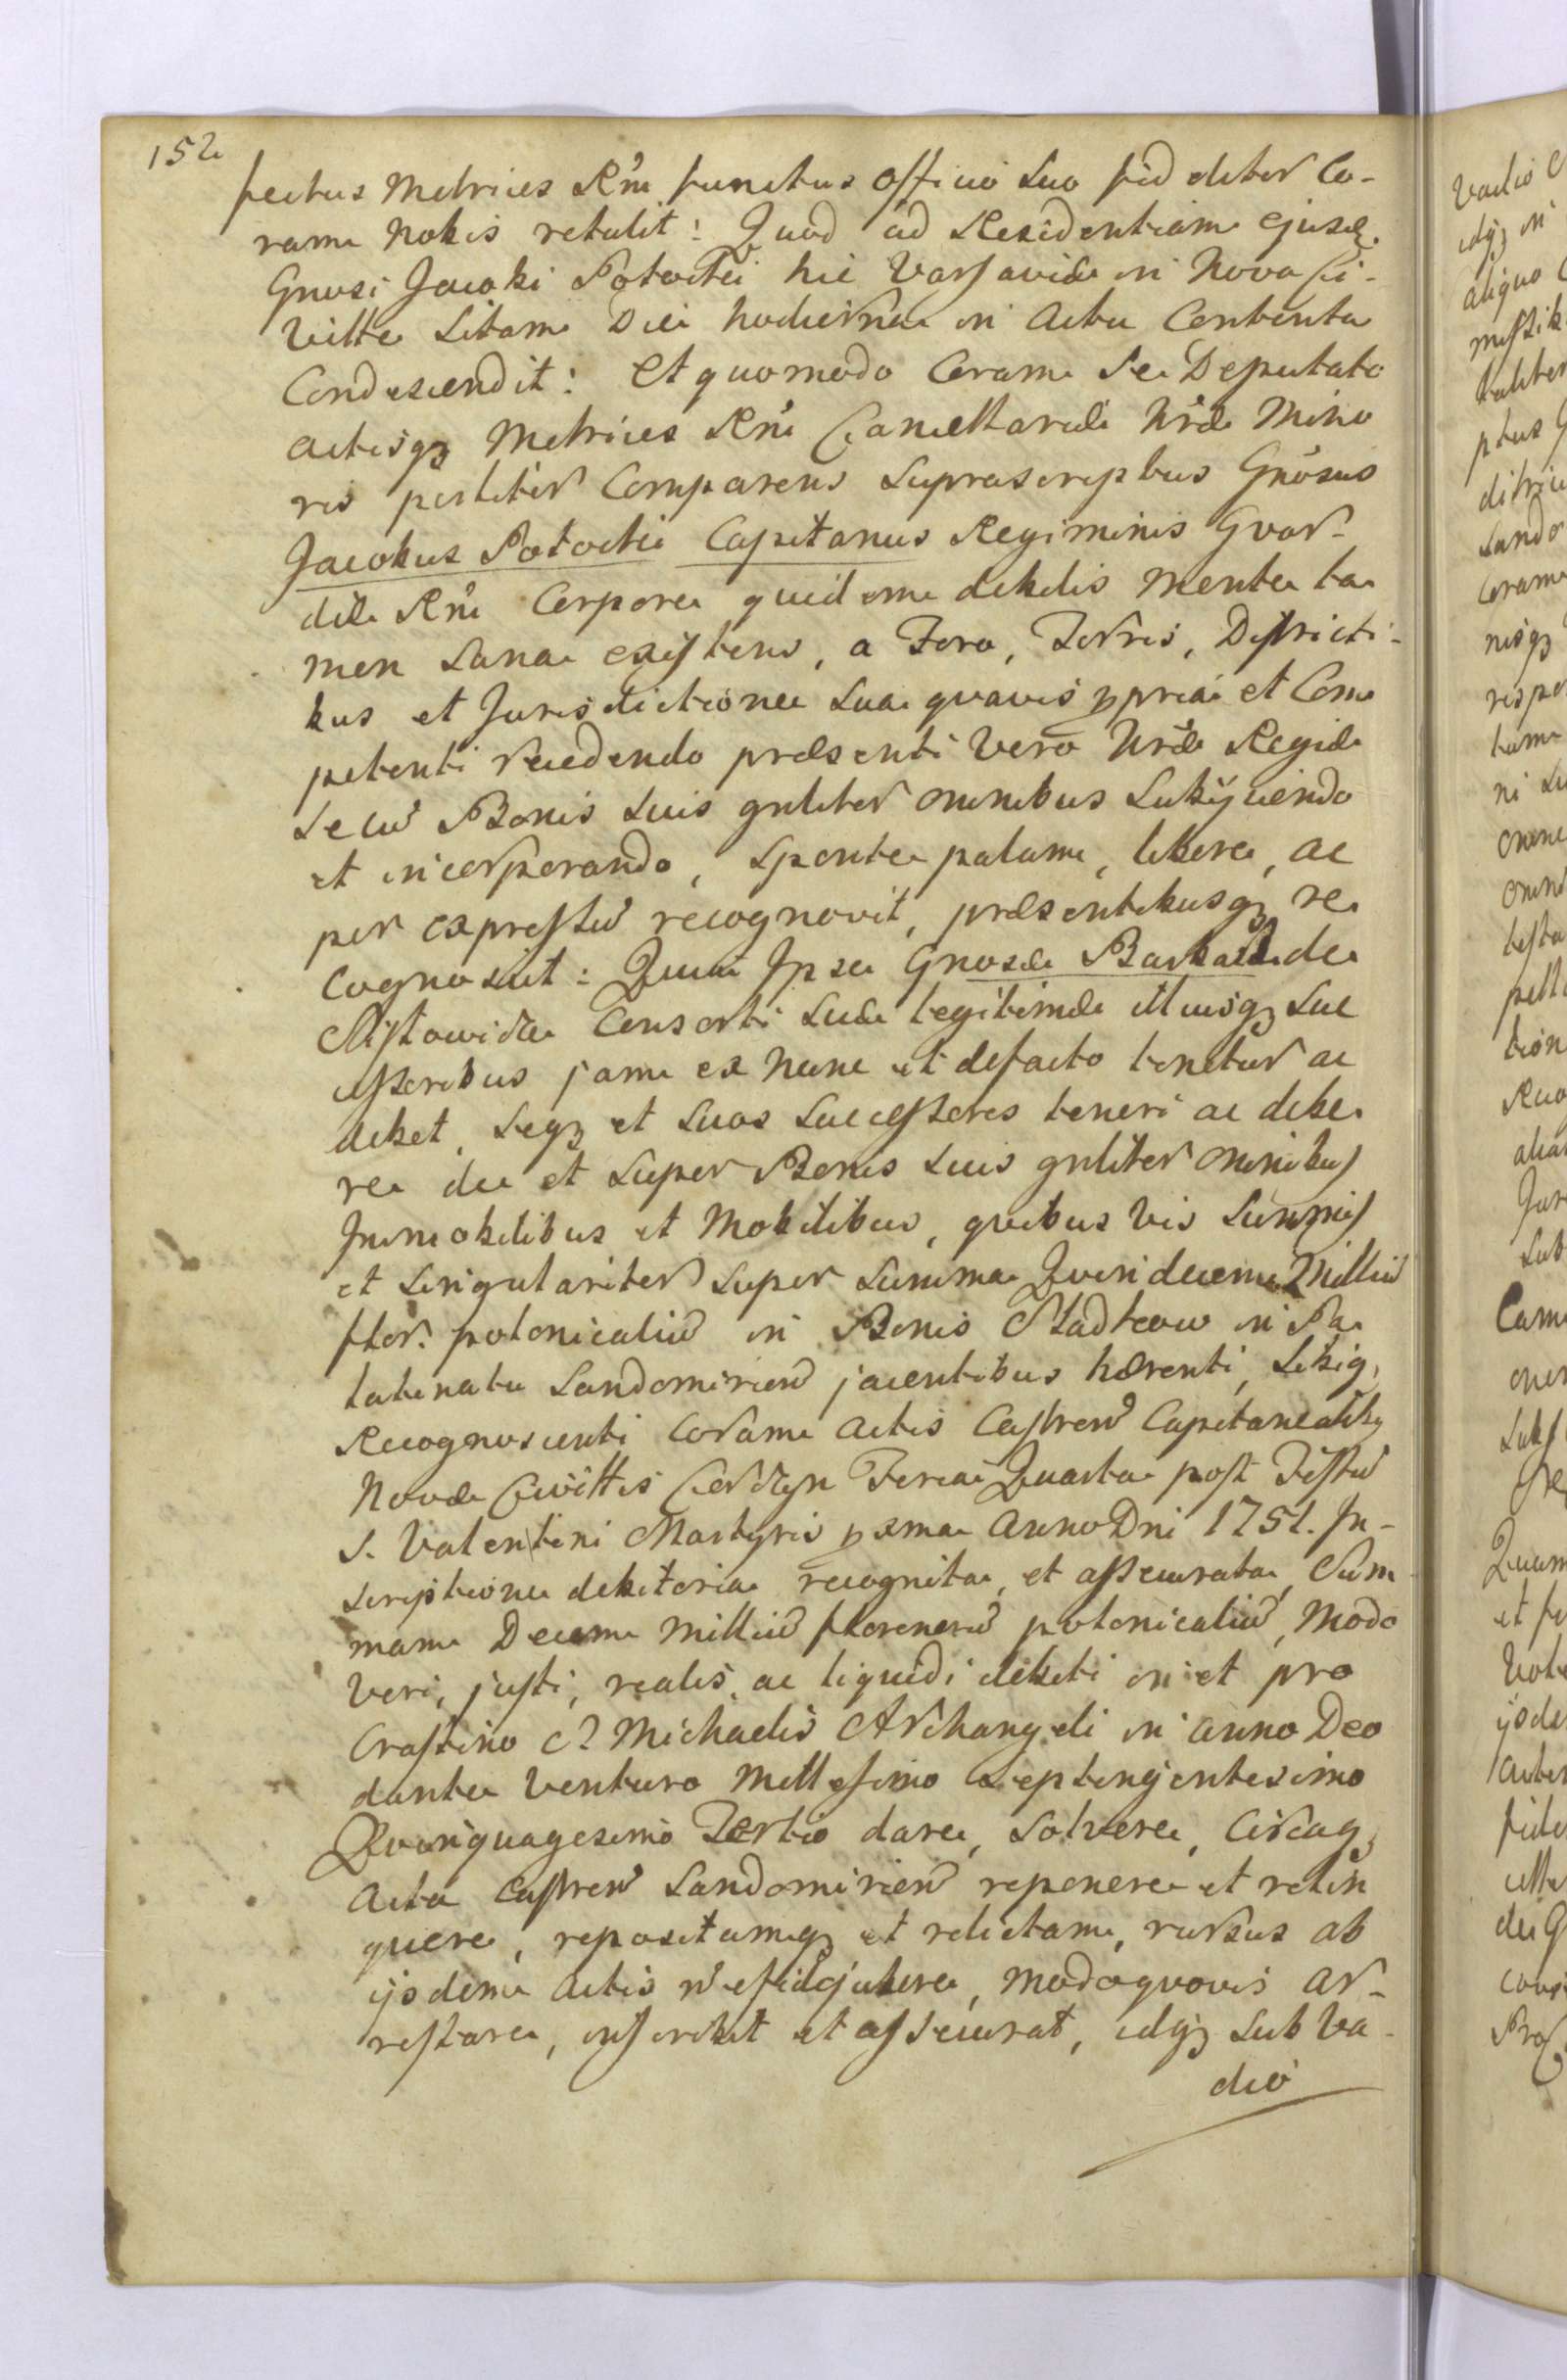 152
fectus Metrices Rni functus officio suo fid deliter Co-
ram Nobis retulit: Quod ad Residentiam ejusd.
Gnosi Jacobi Potocki hic Varsaviæ in Nova Ci-
vitte sitam Die hodierna in Actu Contenta
Condescendit: Et quomodo Coram se Deputato
Actisqz Metrices Rni Cancellariæ Nræ Mino
ris psliter Comparens suprascriptus Gnosus
Jacobus Potocki Capitanus Regiminis Gvar-
diæ Rni Corpore quidem debilis mente ta
men sana existens, a Foro, Terris, Districti-
bus et Jurisdictione sua quavis ppria et Com
petenti recedendo præsenti vero Nræ Regiæ
secu Bonis suis gnliter omnibus subijciendo
et incorporando, sponte palam, libere, ac
per expressu recognovit, præsentibusqz re
cognoscit: Quia Ipse Gnosæ Barbaræ de
Consorti suæ legitimæ illiusqz suc
cessoribus jam ex nunc et defacto tenetur ac
debet, seqz et suos successores teneri ac debe
re de et super Bonis suis gnliter omnibus
Immobilibus et Mobilibus, quibus vis summis
et singulariter super summa Quindecem Milliu
flor. polonicaliu in Bonis in Pa
latinatu Sandomirien jacentibus hærenti, sibiqz
Recognoscenti coram Actis Castren Capitanealibz
Novæ Civittis Korczyn Feria Quarta post Festu
S. Valentini Martyris pxma Anno Dni 1751. In-
scriptione debitoria recognita, et assecurata, Sum
mam Decem milliu florenoru polonicaliu, modo
veri, justi, realis, ac liquidi debiti in et pro
Crastino S. Michaelis Archangeli in anno Deo
dante venturo Millesimo Septingentesimo
Quinquagesimo Tertio dare, solvere, circaqz
Acta Castren Sandomirien reponere et relin
quere, repositamqz et relictam, rursus ab
ijsdem Actis modoquovis ar-
restare, inscribit et assecurat, idqz sub Va-
dio